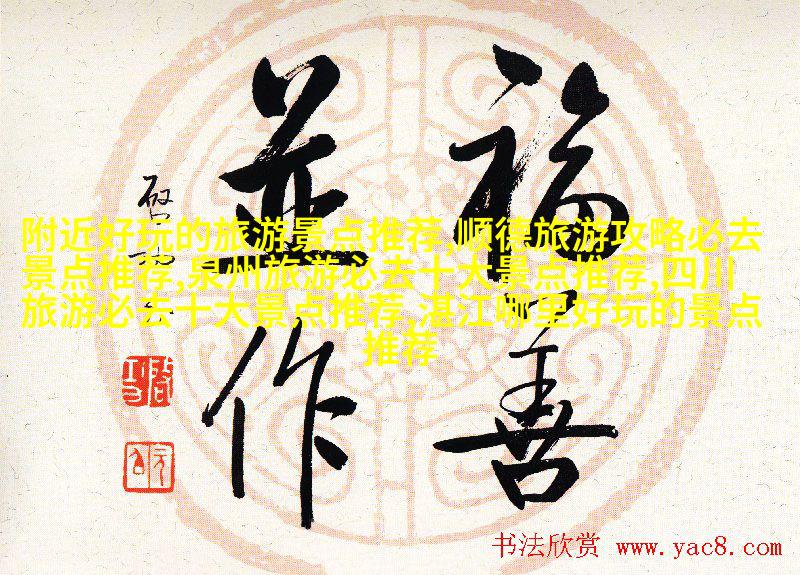 福善
並作
附近好玩的旅游景点推荐,顺德旅游攻略必去
景点推荐,泉州旅游必去十大景点推荐,四川
旅游必去十大景点推荐,湛江哪里好玩的景点
推荐
书法欣赏 www.yac8.com